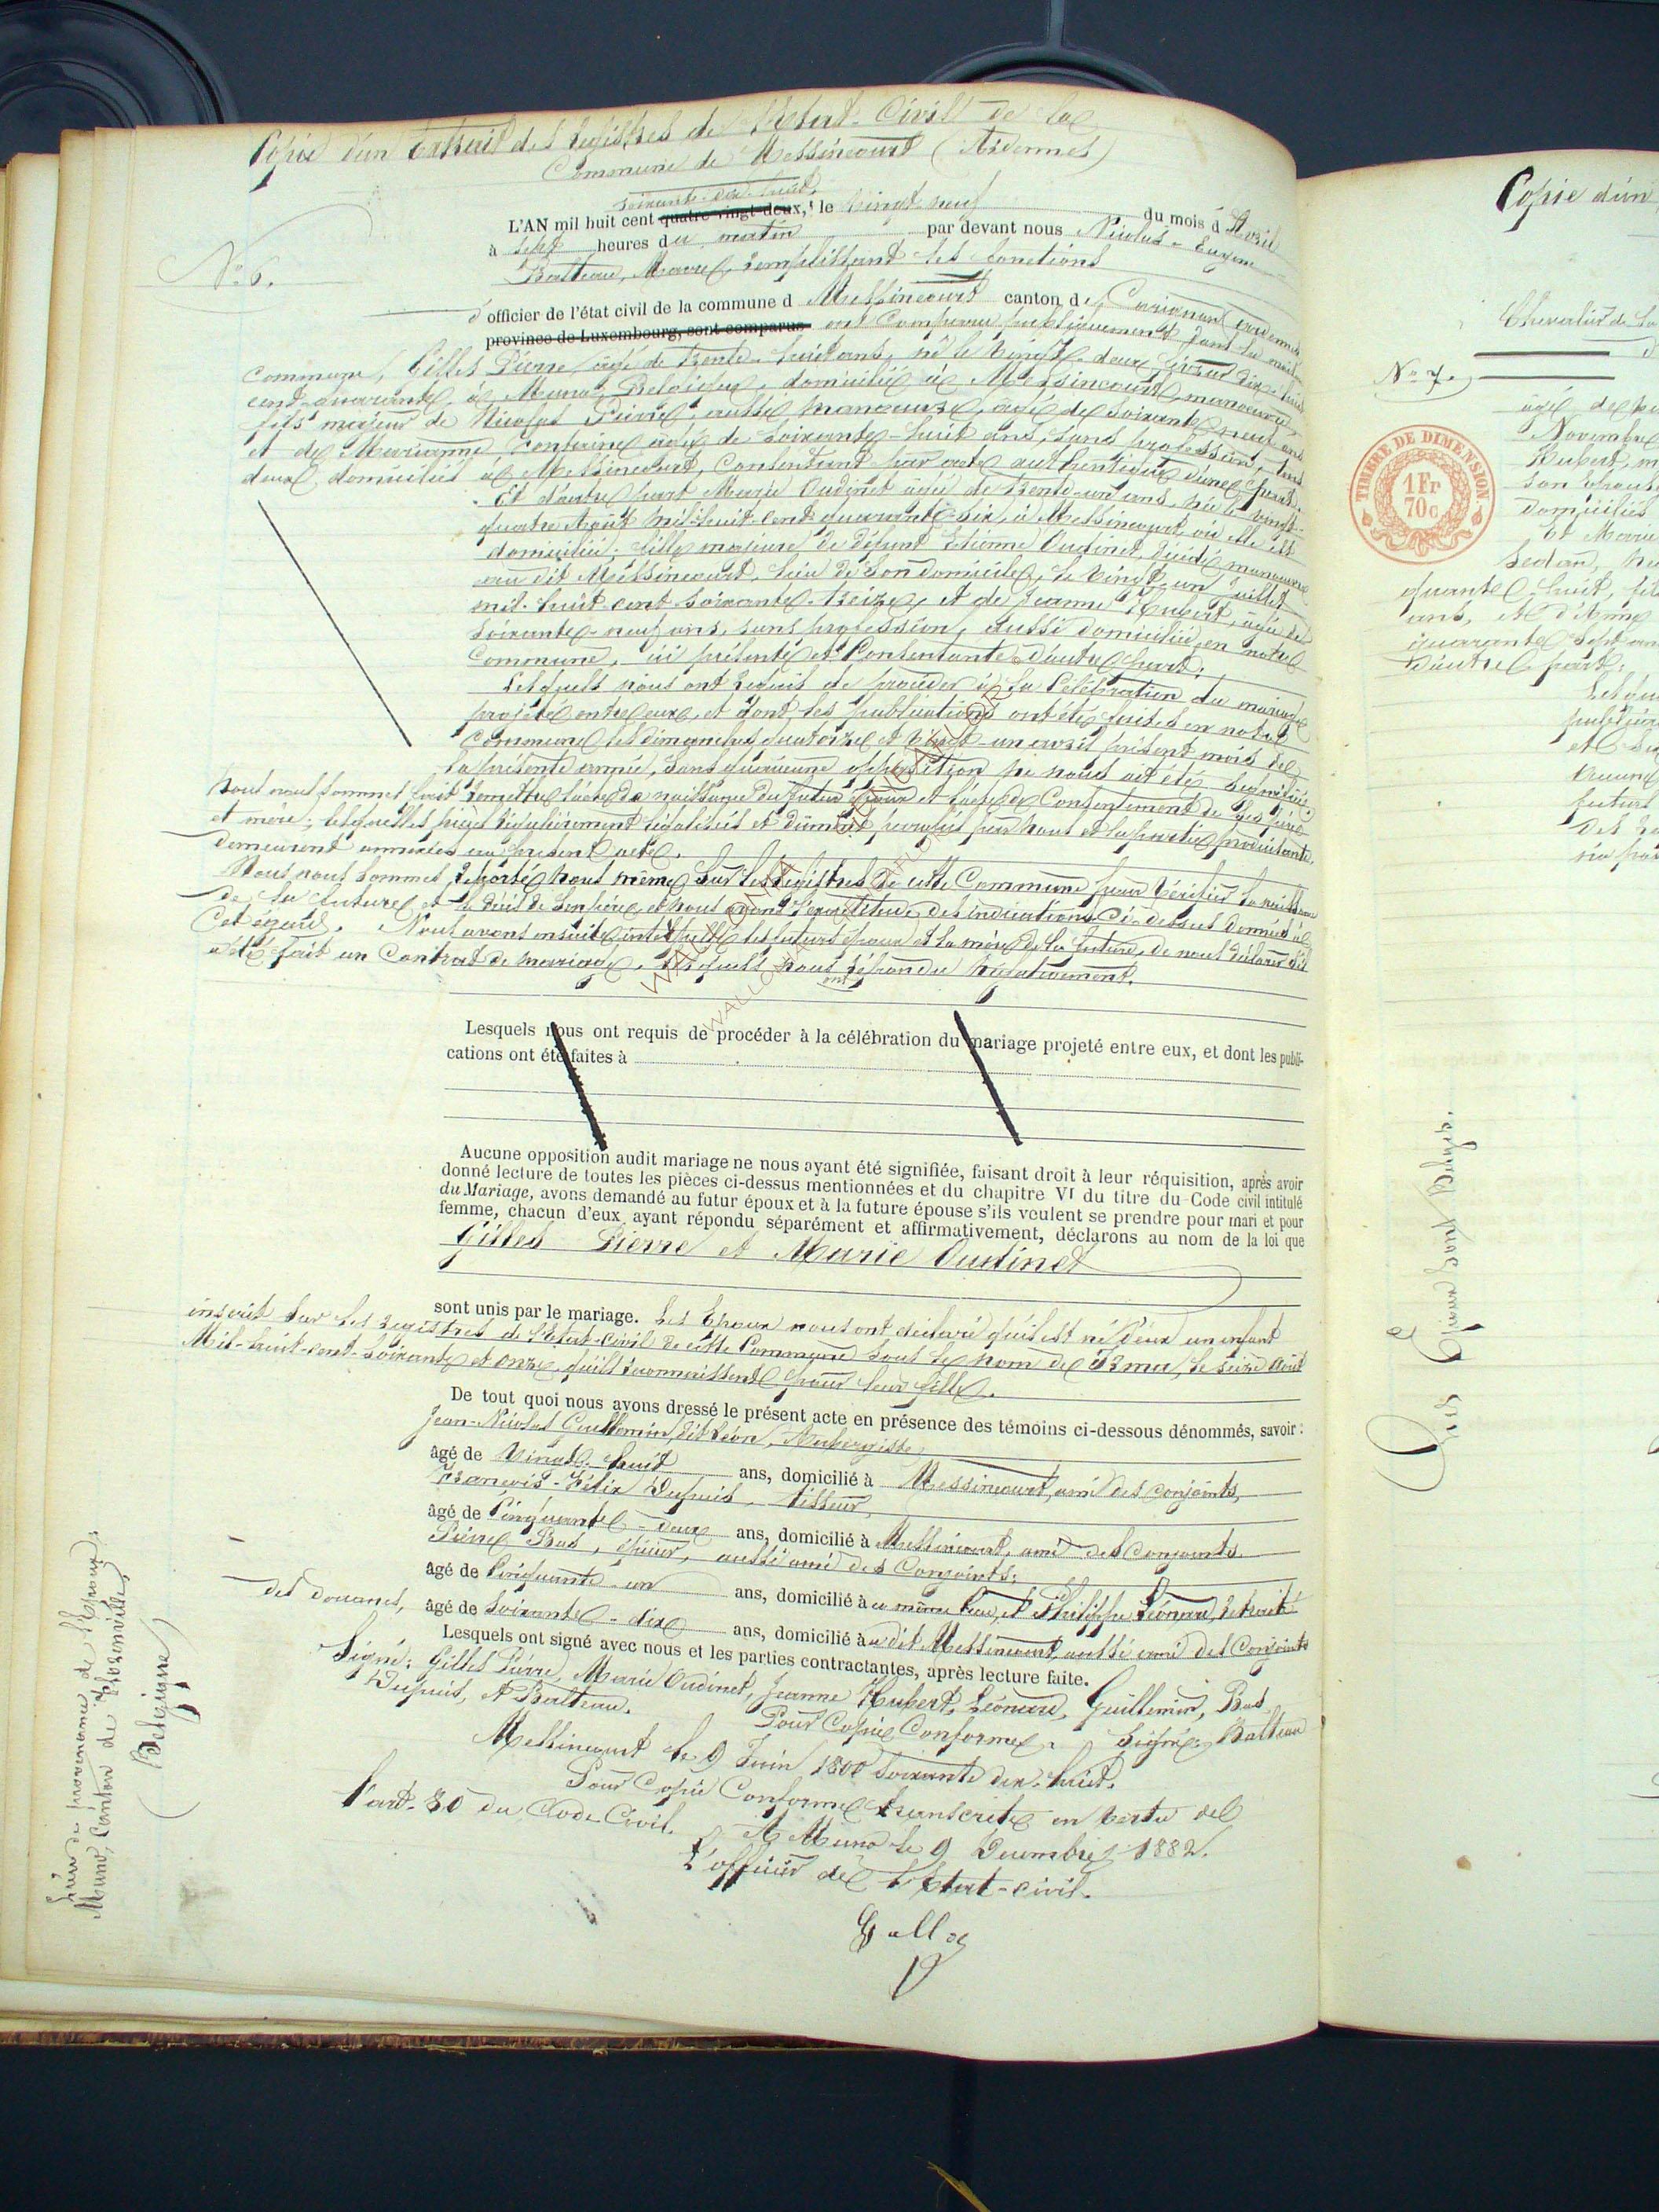 Copie d'un Extrait des registres de l'Etat-Civil de la
Commune de Messincourt (Ardennes)
soixante-dix-huit,
L'AN mil huit cent quatre-vingt-deux, le vingt-neuf du mois d'Avril
à sept heures du matin par devant nous Nicolas-Eugène
Balteau, Maire, remplissant les fonctions
N° 6.
d'officier de l'état civil de la commune d Messincourt canton de Carignan ardennes
province de Luxembourg, sont comparus ont comparu publiquement dans la maison
commune, Gilles Pierre âgé de trente-huit ans, né le vingt-deux février dix-huit
cent-quarante, à Muno, Belgique, domicilié à Messincourt, manœuvre,
fils majeur de Nicolas Pierre, aussi manœuvre, âgé de soixante-neuf ans
et de Marianne Fontaine âgée de soixante-huit ans, sans profession, tous
deux domiciliés à Messincourt, consentant par acte authentique d'une part,
Et d'autre part Marie Oudinet âgée de trente-un ans, née le vingt-
quatre Août mil-huit-cent quarante-six, à Messincourt, où elle est
domiciliée, fille majeure de défunt Etienne Oudinet, décédé manœuvre
au dit Messincourt, lieu de son domicile, le vingt-un Juillet
mil-huit cent soixante-treize, et de Jeanne Hubert, âgée de
soixante-neuf ans, sans profession, aussi domiciliée en notre
Commune, ici présente et Consentante d'autre part.
Lesquels nous ont requis de procéder à la Célébration du mariage
projeté entre eux, et dont les publications ont été faites en notre
commune les dimanches quatorze et vingt-un avril présent mois de
la présente année, sans qu'aucune opposition ne nous ait été signifiée.
Nous nous sommes fait remettre l'acte de naissance du futur époux et l'acte de Consentement de ses père
et mère; lesquelles pièces régulièrement légalisées et dûment paraphées par nous et la partie produisante
demeurent annexées au présent acte.
Nous nous sommes reporté nous même sur les registres de cette Commune pour vérifier la naissance
de la future et le décès de son père, et nous avons l'exactitude des indications ci-dessus données à
cet égard. Nous avons ensuite interpellé les futurs époux et la mère de la future, de nous déclarer s'il
a été fait un Contrat de mariage, lesquels nous ont répondu négativement.
Lesquels nous ont requis de procéder à la célébration du mariage projeté entre eux, et dont les publi-
cations ont été faites à
Aucune opposition audit mariage ne nous ayant été signifiée, faisant droit à leur réquisition, après avoir
donné lecture de toutes les pièces ci-dessus mentionnées et du chapitre VI du titre du Code civil intitulé
du Mariage, avons demandé au futur époux et à la future épouse s'ils veulent se prendre pour mari et pour
femme, chacun d'eux ayant répondu séparément et affirmativement, déclarons au nom de la loi que
Gilles Pierre et Marie Oudinet
sont unis par le mariage. Les Epoux nous ont déclaré qu'il est né d'eux un enfant
inscrit sur les registres de l'état-civil de cette Commune sous le nom de Irma, le seize Août
Mil-huit-cent-soixante et onze, qu'ils reconnaissent pour leur fille.
De tout quoi nous avons dressé le présent acte en présence des témoins ci-dessous dénommés, savoir:
Jean-Nicolas Guillemin, dit Léon, Aubergiste,
âgé de Vingt-huit ans, domicilié à Messincourt, ami des conjoints,
François-Félix Dupuis, tisseur,
âgé de Cinquante-deux ans, domicilié à Messincourt, ami des Conjoints
Pierre Bas, épicier, aussi ami des Conjoints,
âgé de Cinquante-un ans, domicilié à ce même lieu, et Philippe Léonard, retraité
des douanes, âgé de soixante-dix ans, domicilié à u dit Messincourt, aussi ami des Conjoints
Lesquels ont signé avec nous et les parties contractantes, après lecture faite.
Signé: Gilles Pierre, Marie Oudinet, Jeanne Hubert, Léonard, Guillemin, Bas,
Dupuis, et Balteau.
Pour Copie Conforme. Signé: Balteau
Messincourt le 9 Juin 1800 soixante dix-huit.
Pour Copie Conforme transcrite en vertu de
l'art. 80 du Code Civil.
A Muno le 9 Décembre 1882.
L'officier de l'Etat-civil.
Lieu de provenance de l'Epoux:
Muno, Canton de Florenville,
(Belgique)
Copie d'un
Chevalier de
N° 7.
TIMBRE DE DIMENSION
1 Fr
70c
Novembre
Hubert, m
domiciliés
Et Marie
Sedan,
quante-huit, fil
ans, et d'Anne
quarante-sept an
d'autre part;